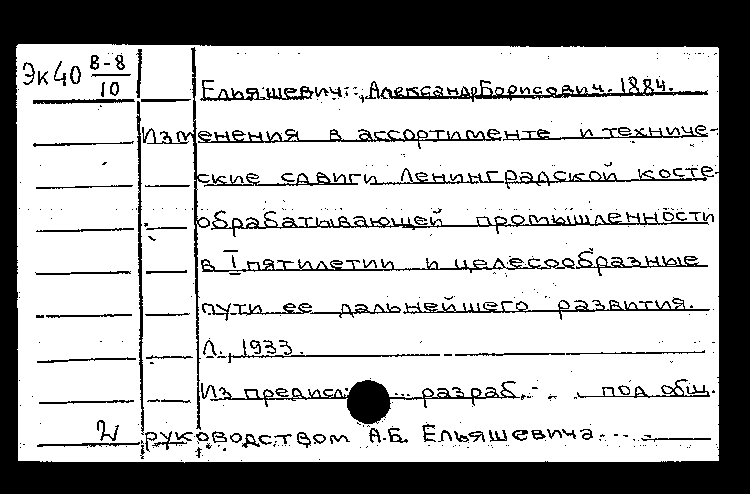 Эк40 В-8/10
Ельяшевич, Александр Борисович. 1884.
Изменения в ассортименте и техниче-
ские сдвиги Ленинградской косте-
обрабатывающей промышленности
в I пятилетии и целесообразные
пути ее дальнейшего развития.
Л., 1933.
Из предисл: ... разраб. . . под общ.
руководством А.Б. Ельяшевича...